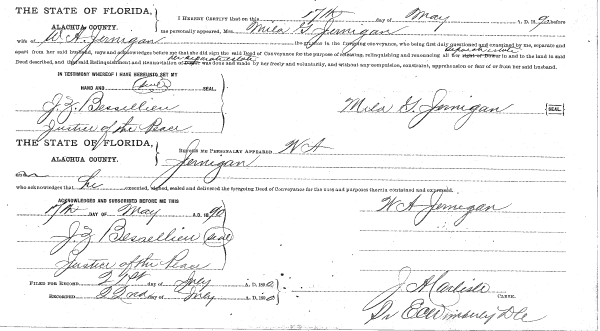 THE STATE OF FLORIDA,
ALACHUA COUNTY.
I HEREBY CERTIFY that on this 17th day of May A. D. 1890 before
me personally appeared, Mrs. Mila G. Jernigan
wife of W. A. Jernigan the grantor in the foregoing conveyance, who being first duly questioned and examined by me, separate and
apart from her said husband, says and acknowledges before me that she did sign the said Deed of Conveyance for the purpose of releasing, relinquishing and renouncing all her separate estate right of Dower in and to the land in said
Deed described, and that said Relinquishment and Renunciation of her separate estate was done and made by her freely and voluntarily, and without any compulsion, constraint, apprehension or fear of or from her said husband.
IN TESTIMONY WHEREOF I HAVE HEREUNTO SET MY
HAND AND (Seal) SEAL.
J. Z. Bessellieu
Justice of the Peace
Mila G. Jernigan {SEAL.}
THE STATE OF FLORIDA,
ALACHUA COUNTY.
BEFORE ME PERSONALLY APPEARED W A
Jernigan
who acknowledges that he executed, signed, sealed and delivered the foregoing Deed of Conveyance for the uses and purposes therein contained and expressed.
ACKNOWLEDGED AND SUBSCRIBED BEFORE ME THIS
17th DAY OF May A.D. 1890
W A Jernigan
J. Z. Bessellieu (Seal)
Justice of the Peace
FILED FOR RECORD 21st day of July A. D. 1890
RECORDED 22nd day of July A. D. 1890
J. A. Carlisle CLERK.
Pr E C Wimberly D C